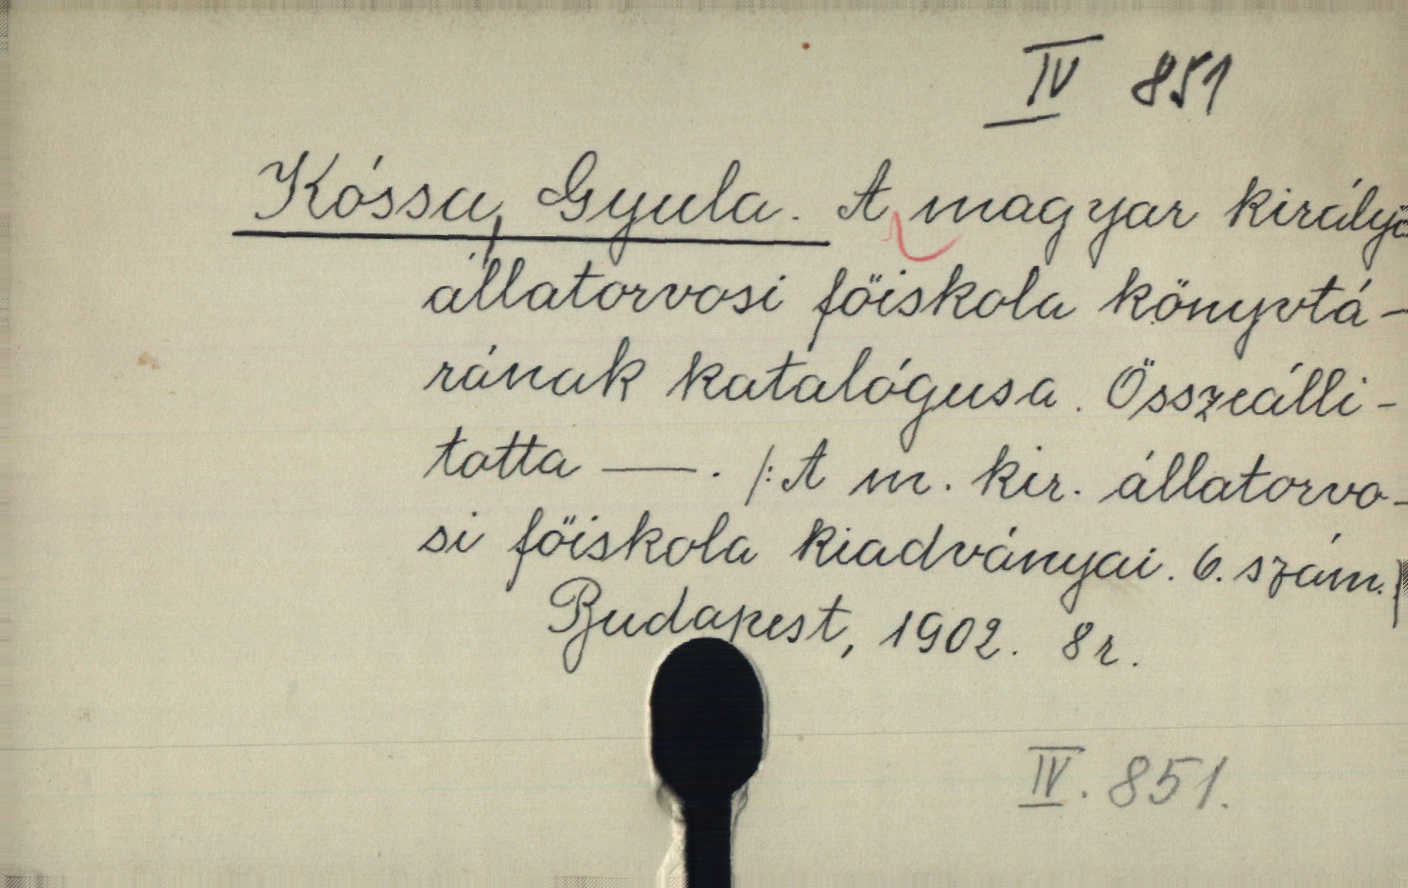 IV 851
Kóssa, Gyula. A magyar királyi
állatorvosi főiskola könyvtá-
rának katalógusa. Összeálli-
totta —. /: A m. kir. állatorvo-
si főiskola kiadványai. 6. szám.
Budapest, 1902. 8r.
IV. 851.